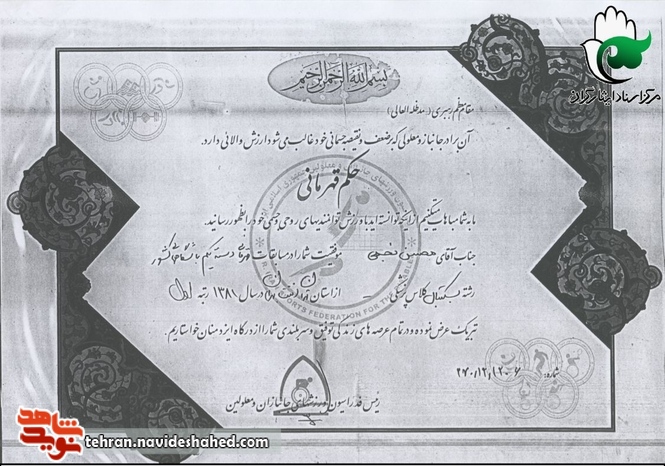 مرکز اسناد ایثارگران
بسم الله الرحمن الرحیم
مقام معظم رهبری (مدظله العالی)
آن برادر جانباز و معلولی که بر ضعف و نقیصه جسمانی خود غالب می شود ارزش والائی دارد.
حکم قهرمانی
ما به شما مباهات میکنیم از اینکه توانسته اید با ورزش توانمندیهای روحی و جسمی خود را بظهور رسانید.
جناب آقای موفقیت شما را در مسابقات کشور
رشته بسکتبال کلاس پزشکی از استان در سال ۱۳۸۱ رتبه اول
تبریک عرض نموده و در تمام عرصه های زندگی توفیق و سربلندی شما را از درگاه ایزد منان خواستاریم.
شماره:
رئیس فدراسیون ورزشهای جانبازان و معلولین
SPORTS FEDERATION FOR THE
شاهد
نوید
tehran.navideshahed.com